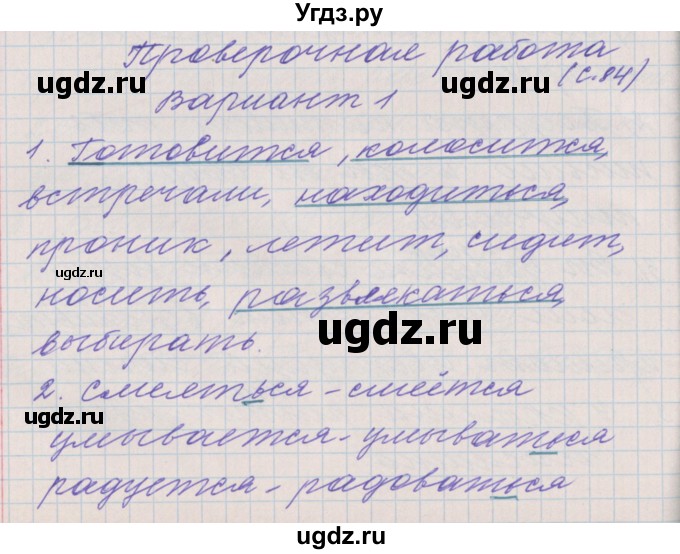 Угдз.ру
Проверочная работа
ugdz.ru Вариант 1 ugdz.ru (с.84)
1. Готовится, колосится,
встречали, находиться,
проник, летит, сидит,
ugdz.ru
носить, развлекаться,
ugdz.ru
выбирать.
2. смеяться - смеётся
ugdz.ru
умывается - умываться
ugdz.ru
радуется - радоваться
ugdz.ru
ugdz.ru